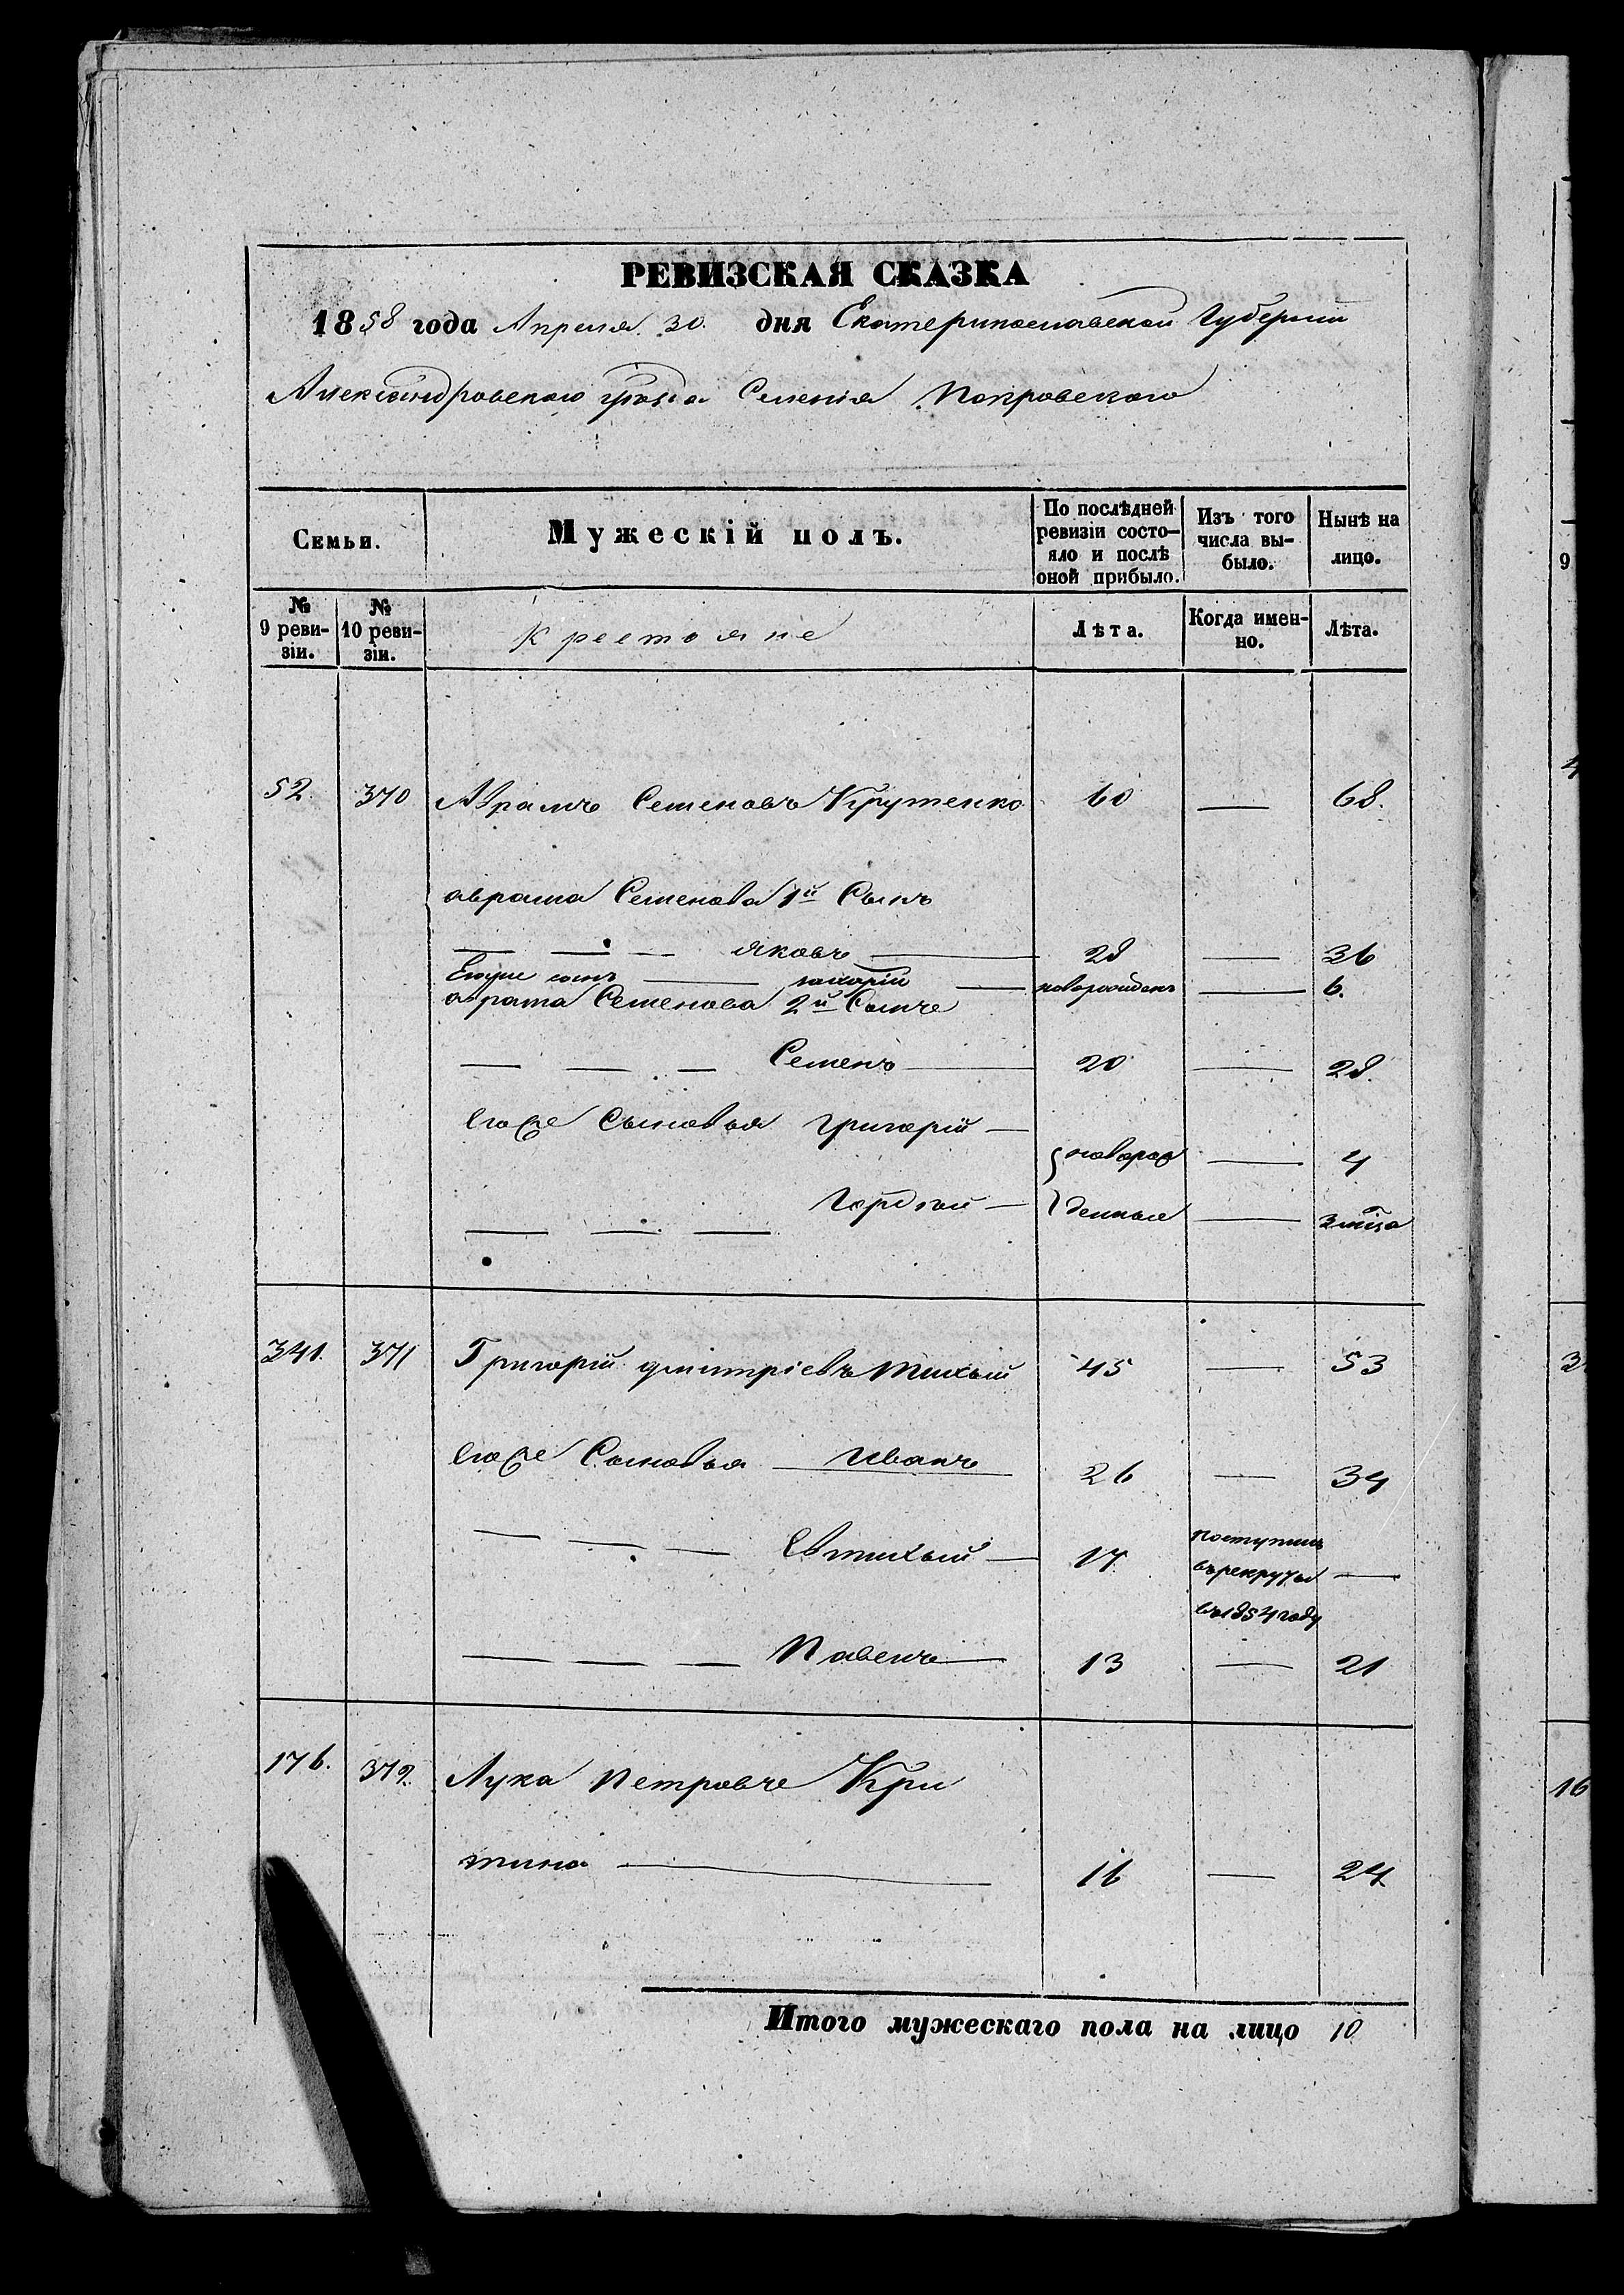 РЕВИЗСКАЯ СКАЗКА
1858 года Апреля 30. дня Екатеринославской Губернии
Александровского уезда Селенія Покровского
Семьи.
Мужескій полъ.
По послѣдней ревизіи состояло и послѣ оной прибыло.
Изъ того числа выбыло.
Нынѣ на лицо.
№ 9 ревизіи.
№ 10 ревизіи.
Крестояне
Лѣта.
Когда именно.
Лѣта.
52. 370 Аврамъ Семеновъ Крутенко 60 — 68.
аврама Семенова 1й Сынъ
— — — яковъ — 28 — 36
Егоже сынъ — — новорожденъ — 6.
аврама Семенова 2й Сынъ
— — — Семенъ — 20 — 28.
Егоже Сыновья Григорій — новорож — 4
— — — Гордѣй — денные — 3 мѣца
341. 371 Григорій дмитріевъ тихый 45 — 53
Егоже Сыновья Иванъ 26 — 34
— — — Евтихый — 17. поступилъ въ рекруты въ 1854 году —
— — — Павелъ — 13 — 21
176. 372. Лука петровъ Кри
тина — 16 — 24
Итого мужескаго пола на лицо 10